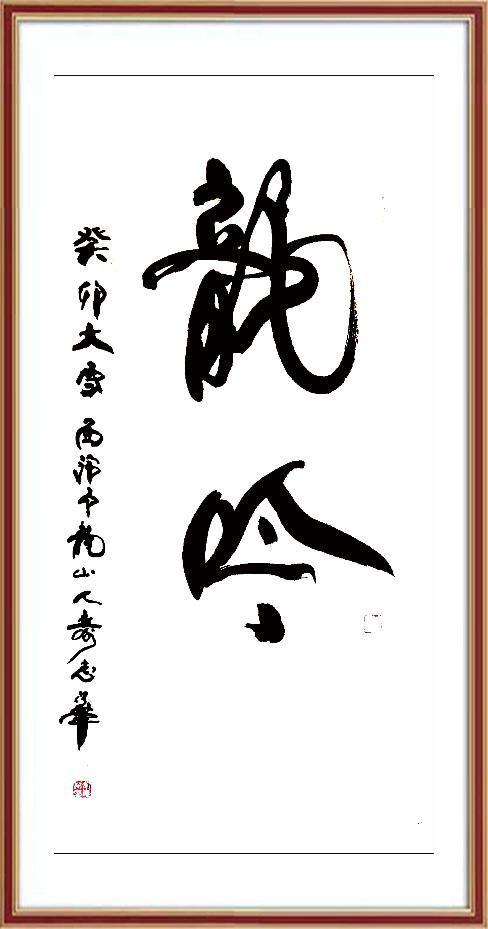 龍吟
癸卯大雪 西 龍山人壽志華